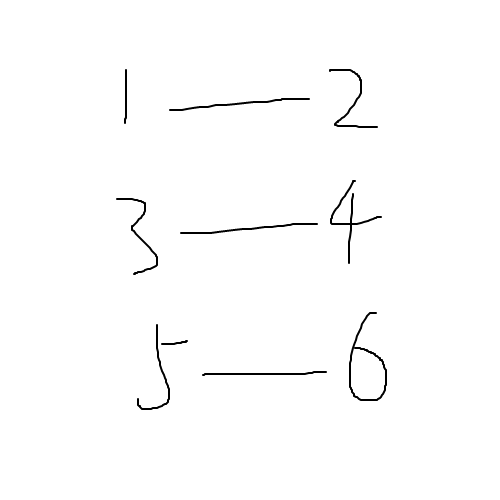 1 — 2
3 — 4
5 — 6